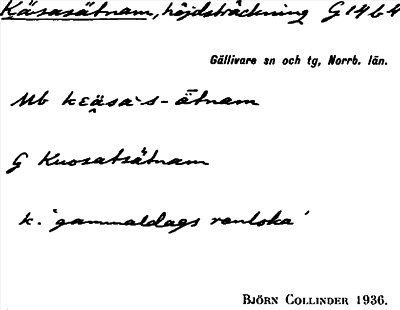 Käsasätnam, höjdsträckning G 14 b 4
Gällivare sn och tg, Norrb. län.
Mb kεäsa`s-ätnam
G Kuosatsätnam
k. 'gammaldags renloka'
BJÖRN COLLINDER 1936.